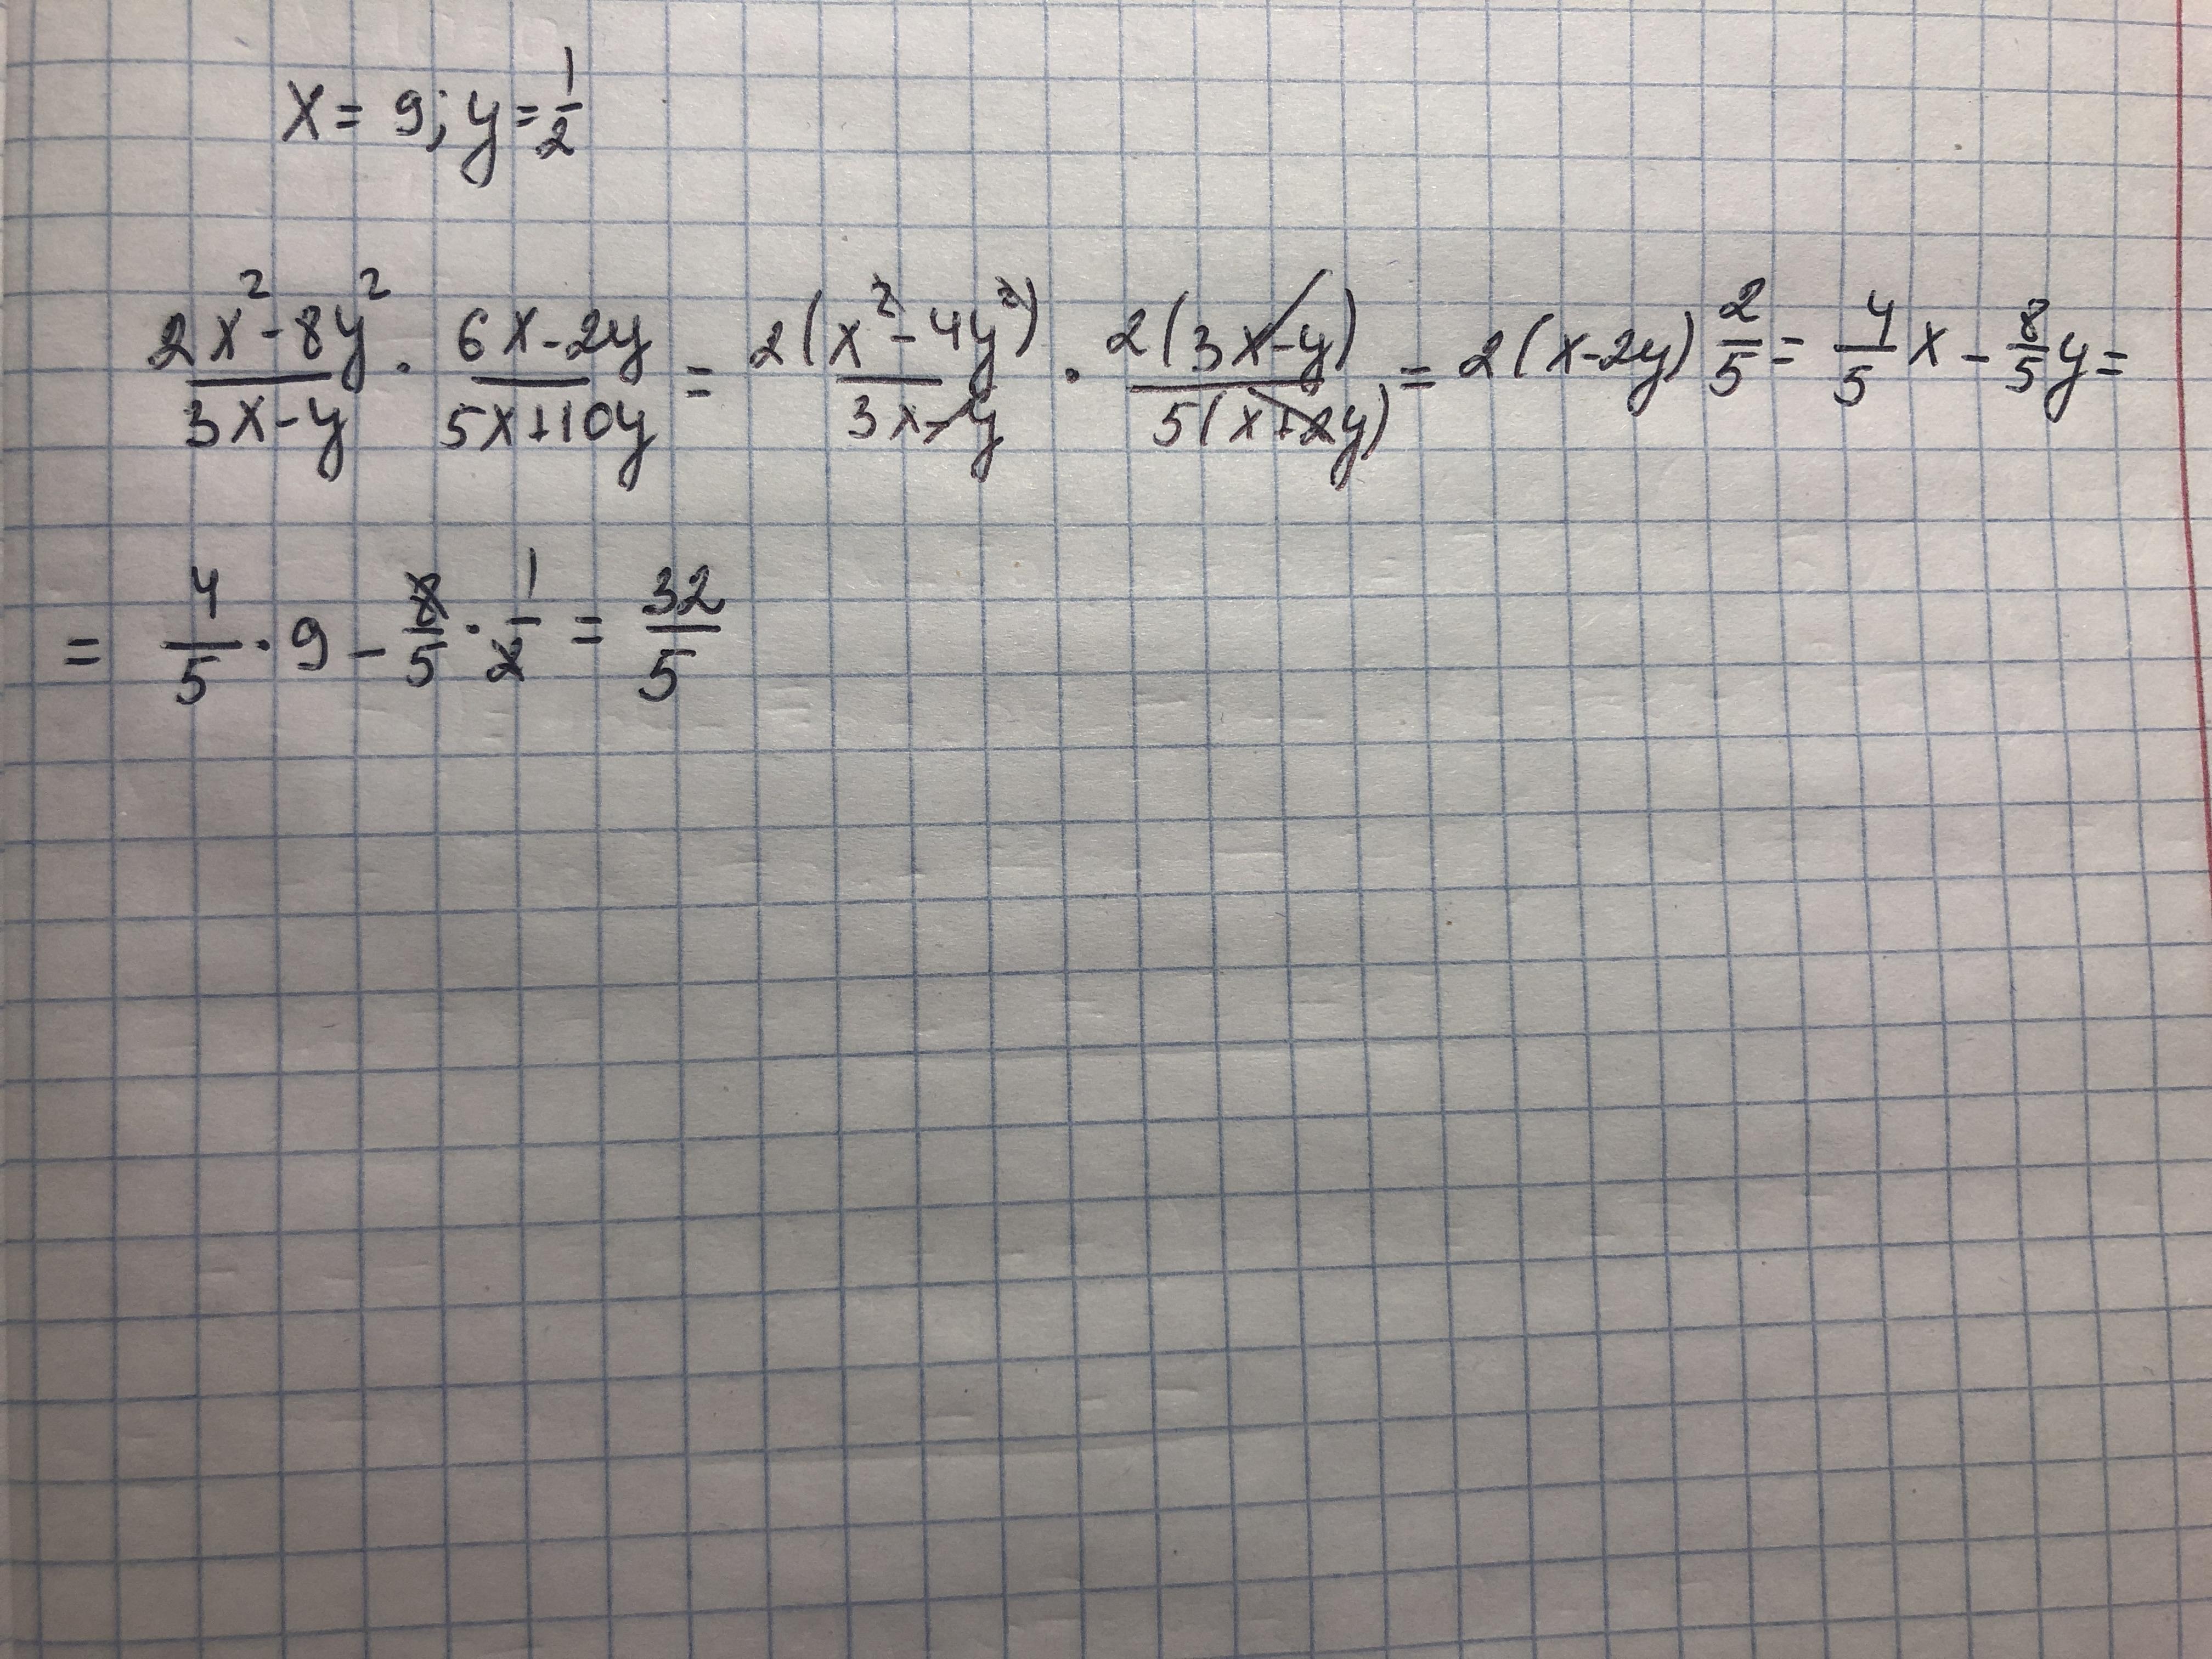 x = 9; y = 1/2
(2x² - 8y²)/(3x - y) · (6x - 2y)/(5x + 10y) = 2(x² - 4y²)/(3x - y) · 2(3x - y)/(5(x + 2y)) = 2(x - 2y) 2/5 = 4/5 x - 8/5 y =
= 4/5 · 9 - 8/5 · 1/2 = 32/5